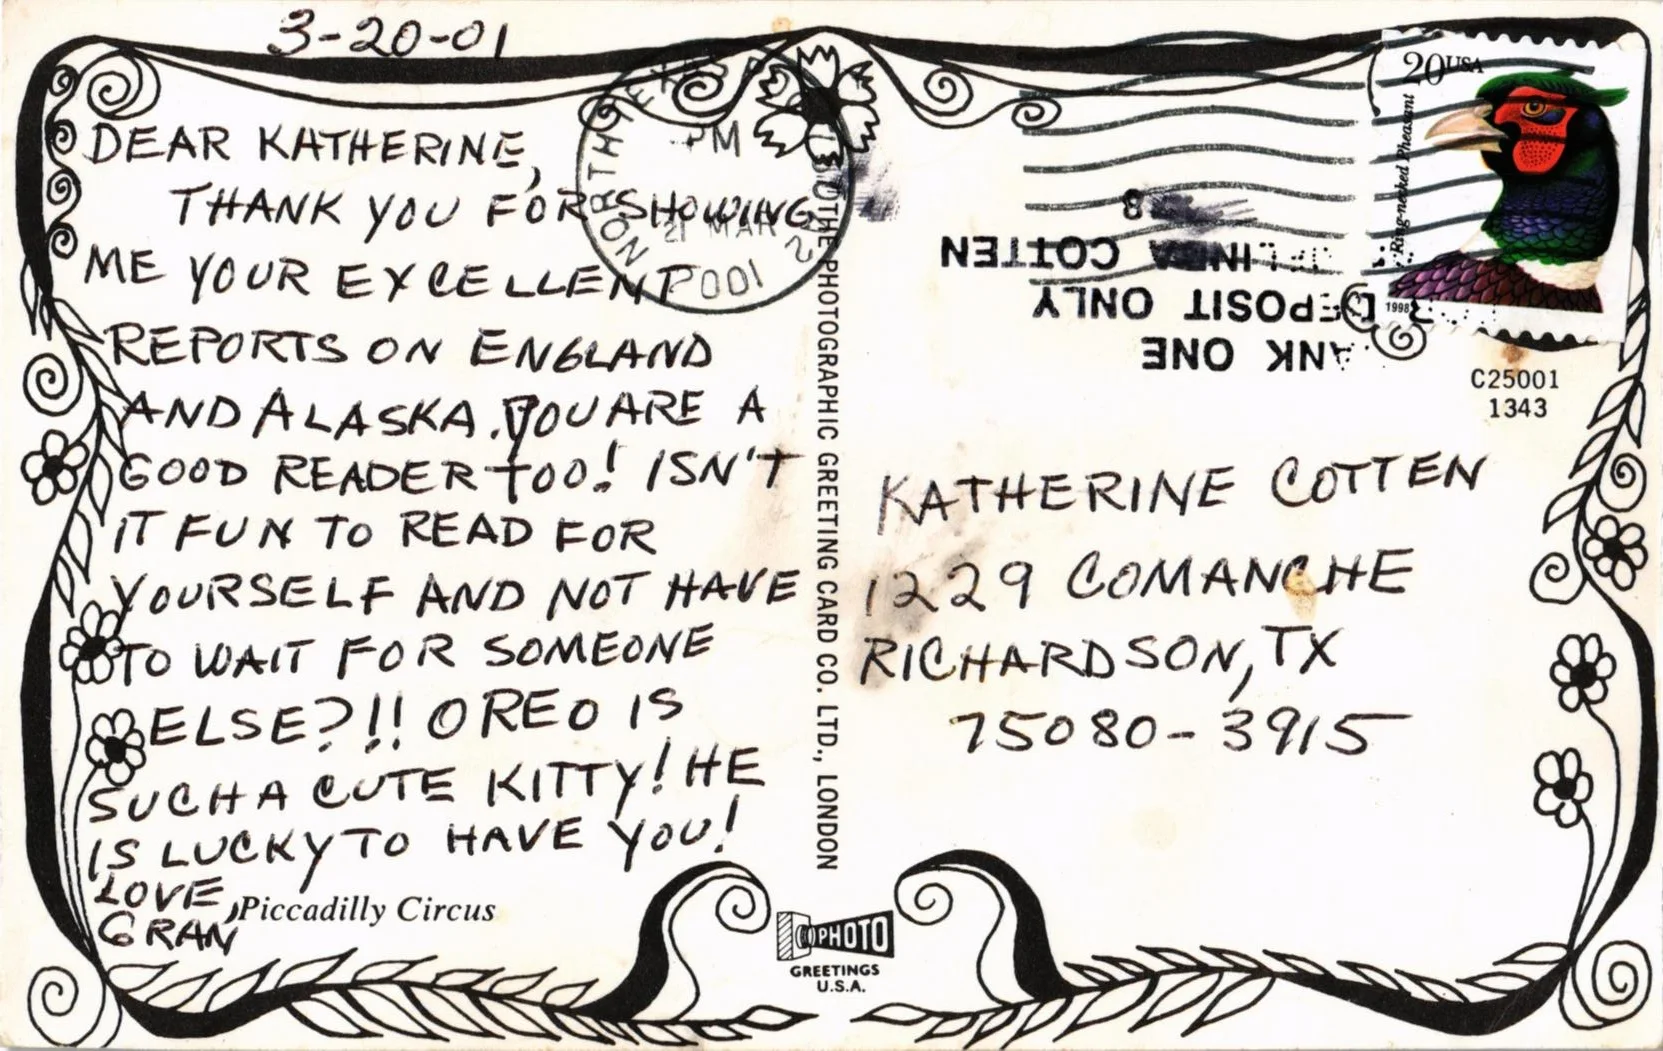 3-20-01
DEAR KATHERINE,
THANK YOU FOR SHOWING
ME YOUR EXCELLENT
REPORTS ON ENGLAND
AND ALASKA. YOU ARE A
GOOD READER TOO! ISN'T
IT FUN TO READ FOR
YOURSELF AND NOT HAVE
TO WAIT FOR SOMEONE
ELSE?!! OREO IS
SUCH A CUTE KITTY! HE
IS LUCKY TO HAVE YOU!
LOVE,
GRAN
Piccadilly Circus
NORTH TEXAS
PM
21 MAR
2001
THE PHOTOGRAPHIC GREETING CARD CO. LTD., LONDON
PHOTO
GREETINGS
U.S.A.
20USA
Ring-necked Pheasant
1998
ANK ONE
DEPOSIT ONLY
COTTEN
C25001
1343
KATHERINE COTTEN
1229 COMANCHE
RICHARDSON, TX
75080-3915